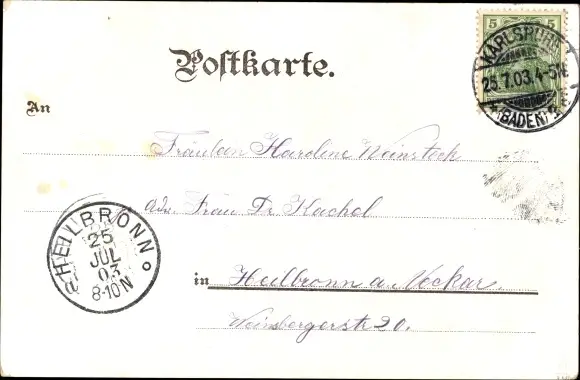 5 5
KARLSRUHE
25.7.03.4-5N.
(BADEN)
Postkarte.
An
Fräulein Karoline Weinstock
Adr. Frau Dr. Kachel
in Heilbronn a. Neckar.
Weinsbergerstr 20.
HEILBRONN
25
JUL
03
8-10N